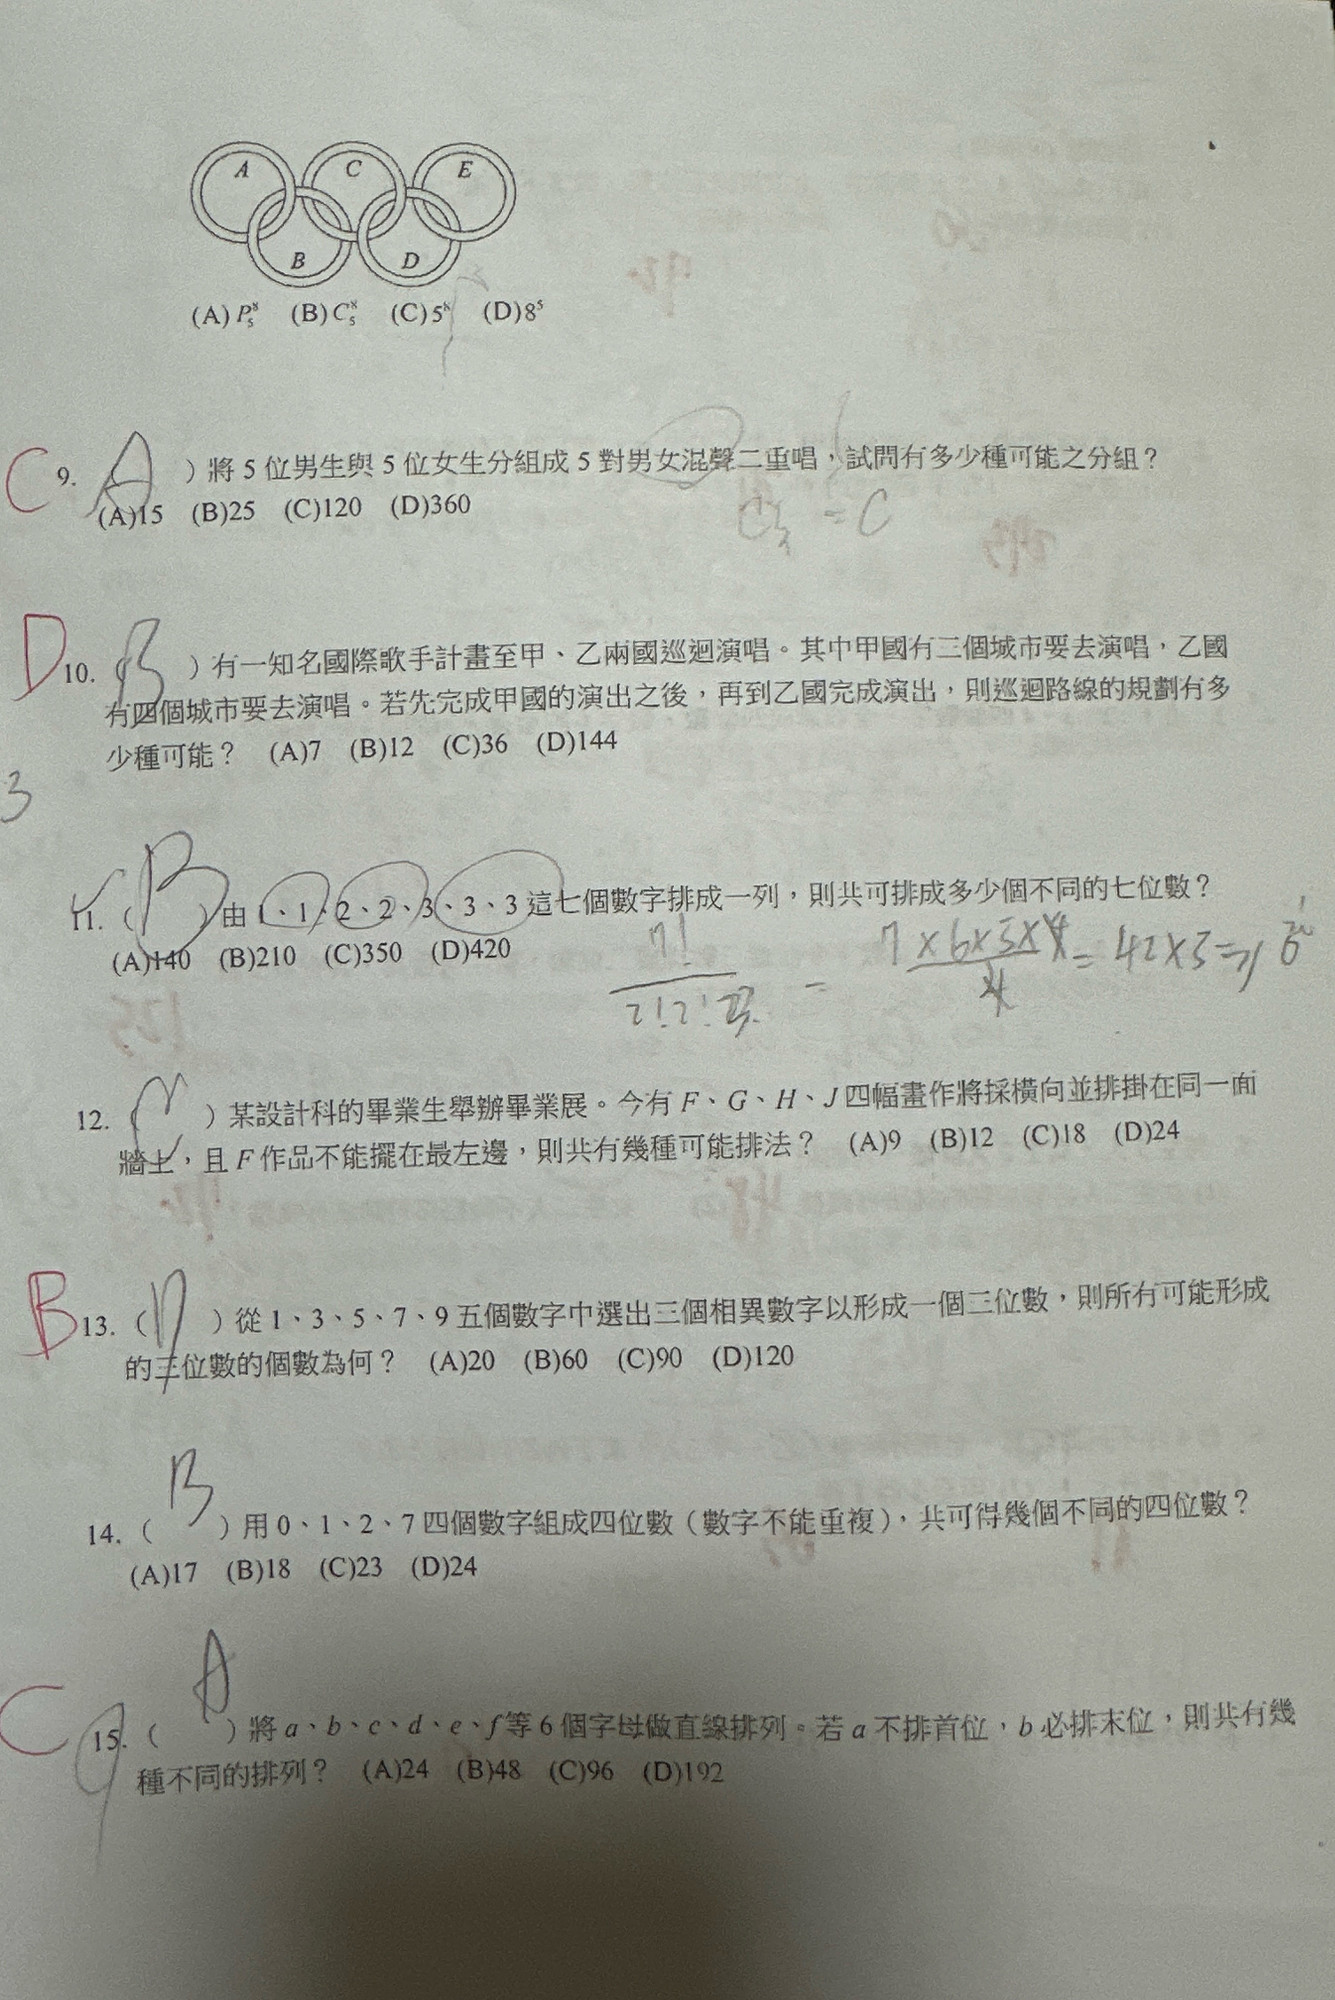 A C E
B D
(A) P₅⁸ (B) C₅⁸ (C) 5⁸ (D) 8⁵
C 9. ( A )將 5 位男生與 5 位女生分組成 5 對男女混聲二重唱，試問有多少種可能之分組？
(A)15 (B)25 (C)120 (D)360
D 10. ( B )有一知名國際歌手計畫至甲、乙兩國巡迴演唱。其中甲國有三個城市要去演唱，乙國
有四個城市要去演唱。若先完成甲國的演出之後，再到乙國完成演出，則巡迴路線的規劃有多
少種可能？ (A)7 (B)12 (C)36 (D)144
3
11. ( B )由 1、1、2、2、3、3、3 這七個數字排成一列，則共可排成多少個不同的七位數？
(A)140 (B)210 (C)350 (D)420
7!
7×6×5×4
= 42×5=
12. ( )某設計科的畢業生舉辦畢業展。今有 F、G、H、J 四幅畫作將採橫向並排掛在同一面
牆上，且 F 作品不能擺在最左邊，則共有幾種可能排法？ (A)9 (B)12 (C)18 (D)24
B 13. ( D )從 1、3、5、7、9 五個數字中選出三個相異數字以形成一個三位數，則所有可能形成
的三位數的個數為何？ (A)20 (B)60 (C)90 (D)120
14. ( B )用 0、1、2、7 四個數字組成四位數（數字不能重複），共可得幾個不同的四位數？
(A)17 (B)18 (C)23 (D)24
C 15. ( A )將 a、b、c、d、e、f 等 6 個字母做直線排列。若 a 不排首位，b 必排末位，則共有幾
種不同的排列？ (A)24 (B)48 (C)96 (D)192